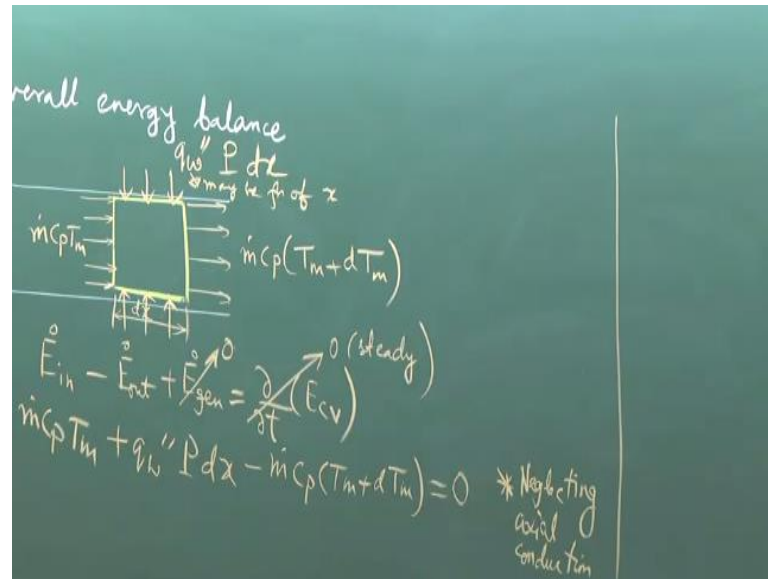 verall energy balance
qw'' P dx
may be fn of x
ṁCpTm
ṁCp(Tm+dTm)
dx
Ėin - Ėout + Ėgen = ∂/∂t (Ecv)
0
0 (steady)
ṁCpTm + qw'' P dx - ṁCp(Tm+dTm) = 0
* Neglecting
axial
conduction